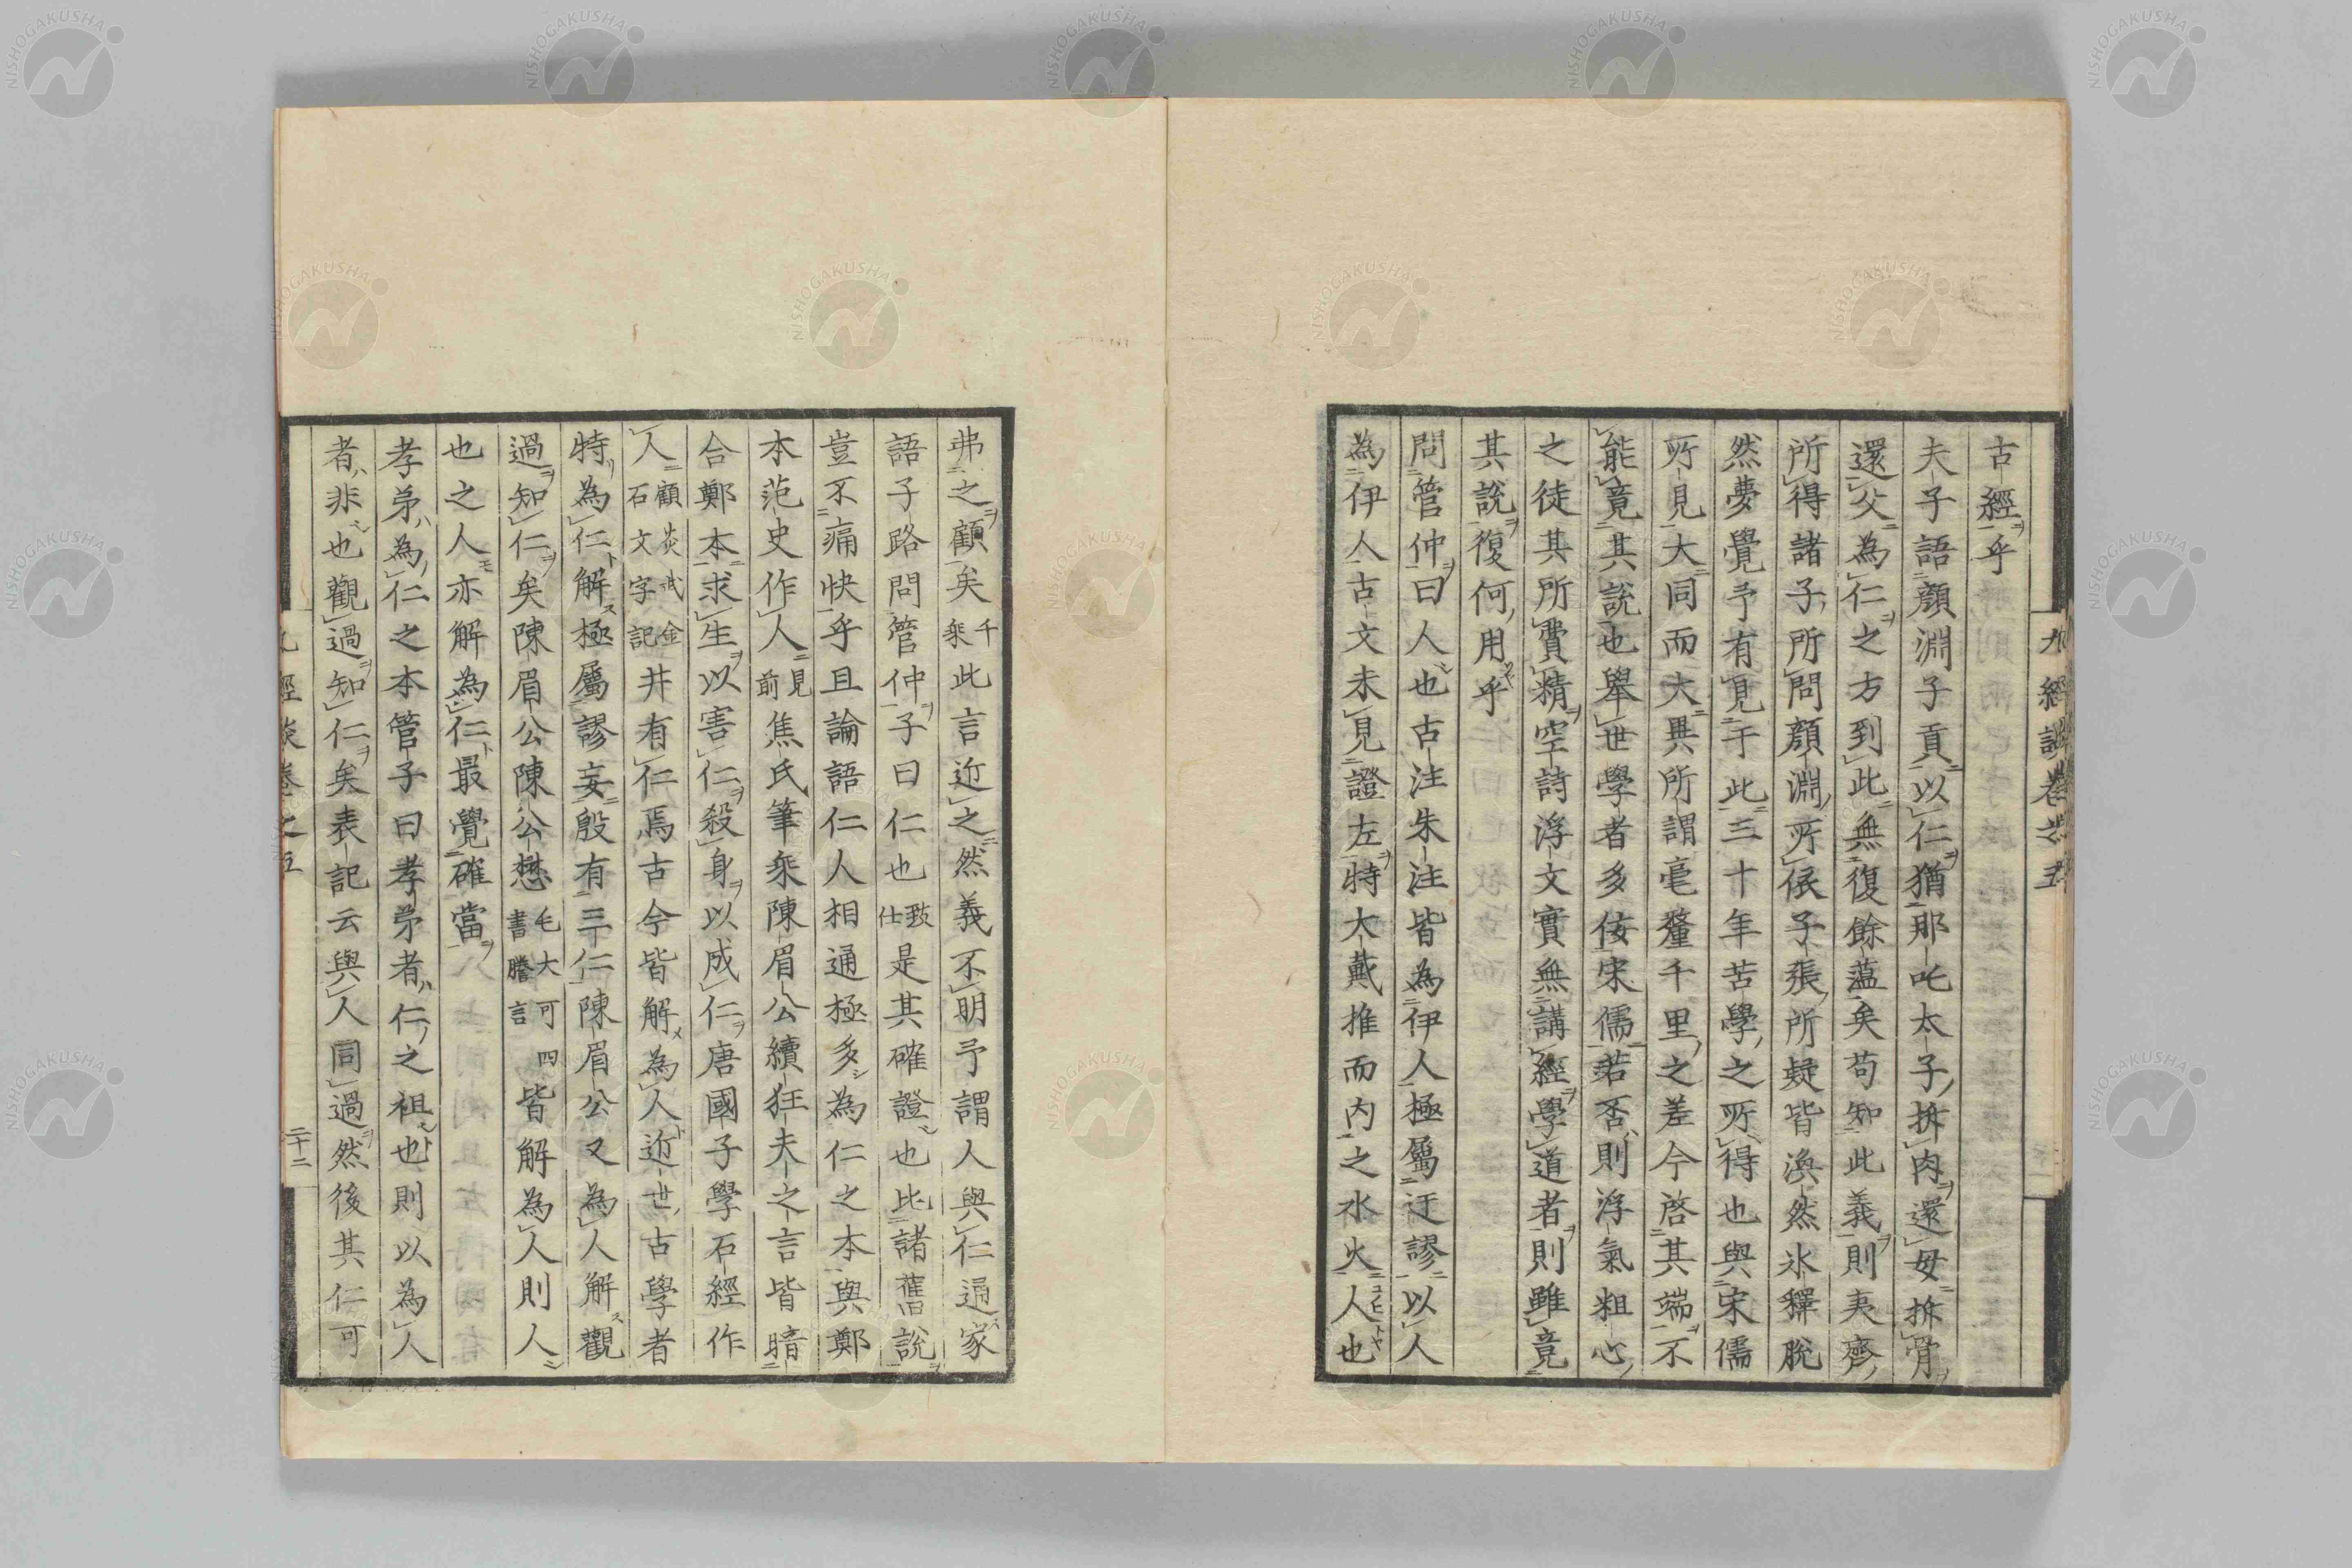 九經談卷之五
古經乎
夫子語顏淵子貢以仁猶那吒太子拆肉還母拆骨
還父為仁之方到此無復餘蘊矣苟知此義則夷齊
所得諸子所問顏淵所依子張所疑皆渙然氷釋脫
然夢覺予有見于此三十年苦學之所得也與宋儒
所見大同而大異所謂毫釐千里之差今啓其端不
能竟其說也舉世學者多侫宋儒若否則浮氣粗心
之徒其所費精空詩浮文實無講經學道者則雖竟
其說復何用乎
問管仲曰人也古注朱注皆為伊人極屬迂謬以人
為伊人古文未見證左特大戴推而內之水火人也
弗之顧矣千乘此言近之然義不明予謂人與仁通家
語子路問管仲子曰仁也致仕是其確證也比諸舊說
豈不痛快乎且論語仁人相通極多為仁之本與鄭
本范史作人見前焦氏筆乘陳眉公續狂夫之言皆暗
合鄭本求生以害仁殺身以成仁唐國子學石經作
人顧炎武金石文字記井有仁焉古今皆解為人近世古學者
特為仁解極屬謬妄殷有三仁陳眉公又為人解觀
過知仁矣陳眉公陳公懋毛大可四書賸言皆解為人則人
也之人亦解為仁最覺確當
孝弟為仁之本管子曰孝弟者仁之祖也則以為人
者非也觀過知仁矣表記云與人同過然後其仁可
九經談卷之五
二十二